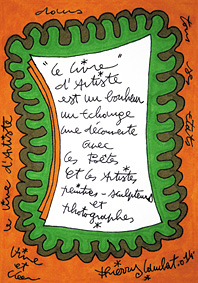 dans
tous ses états
"Le Livre"
d'Artiste
est un bonheur
un échange
une découverte
avec
les Poètes
Et les Artistes
peintres - sculpteurs
et
photographes
le livre d'Artiste
Vivre
et
Créer
Thierry Lambert.014